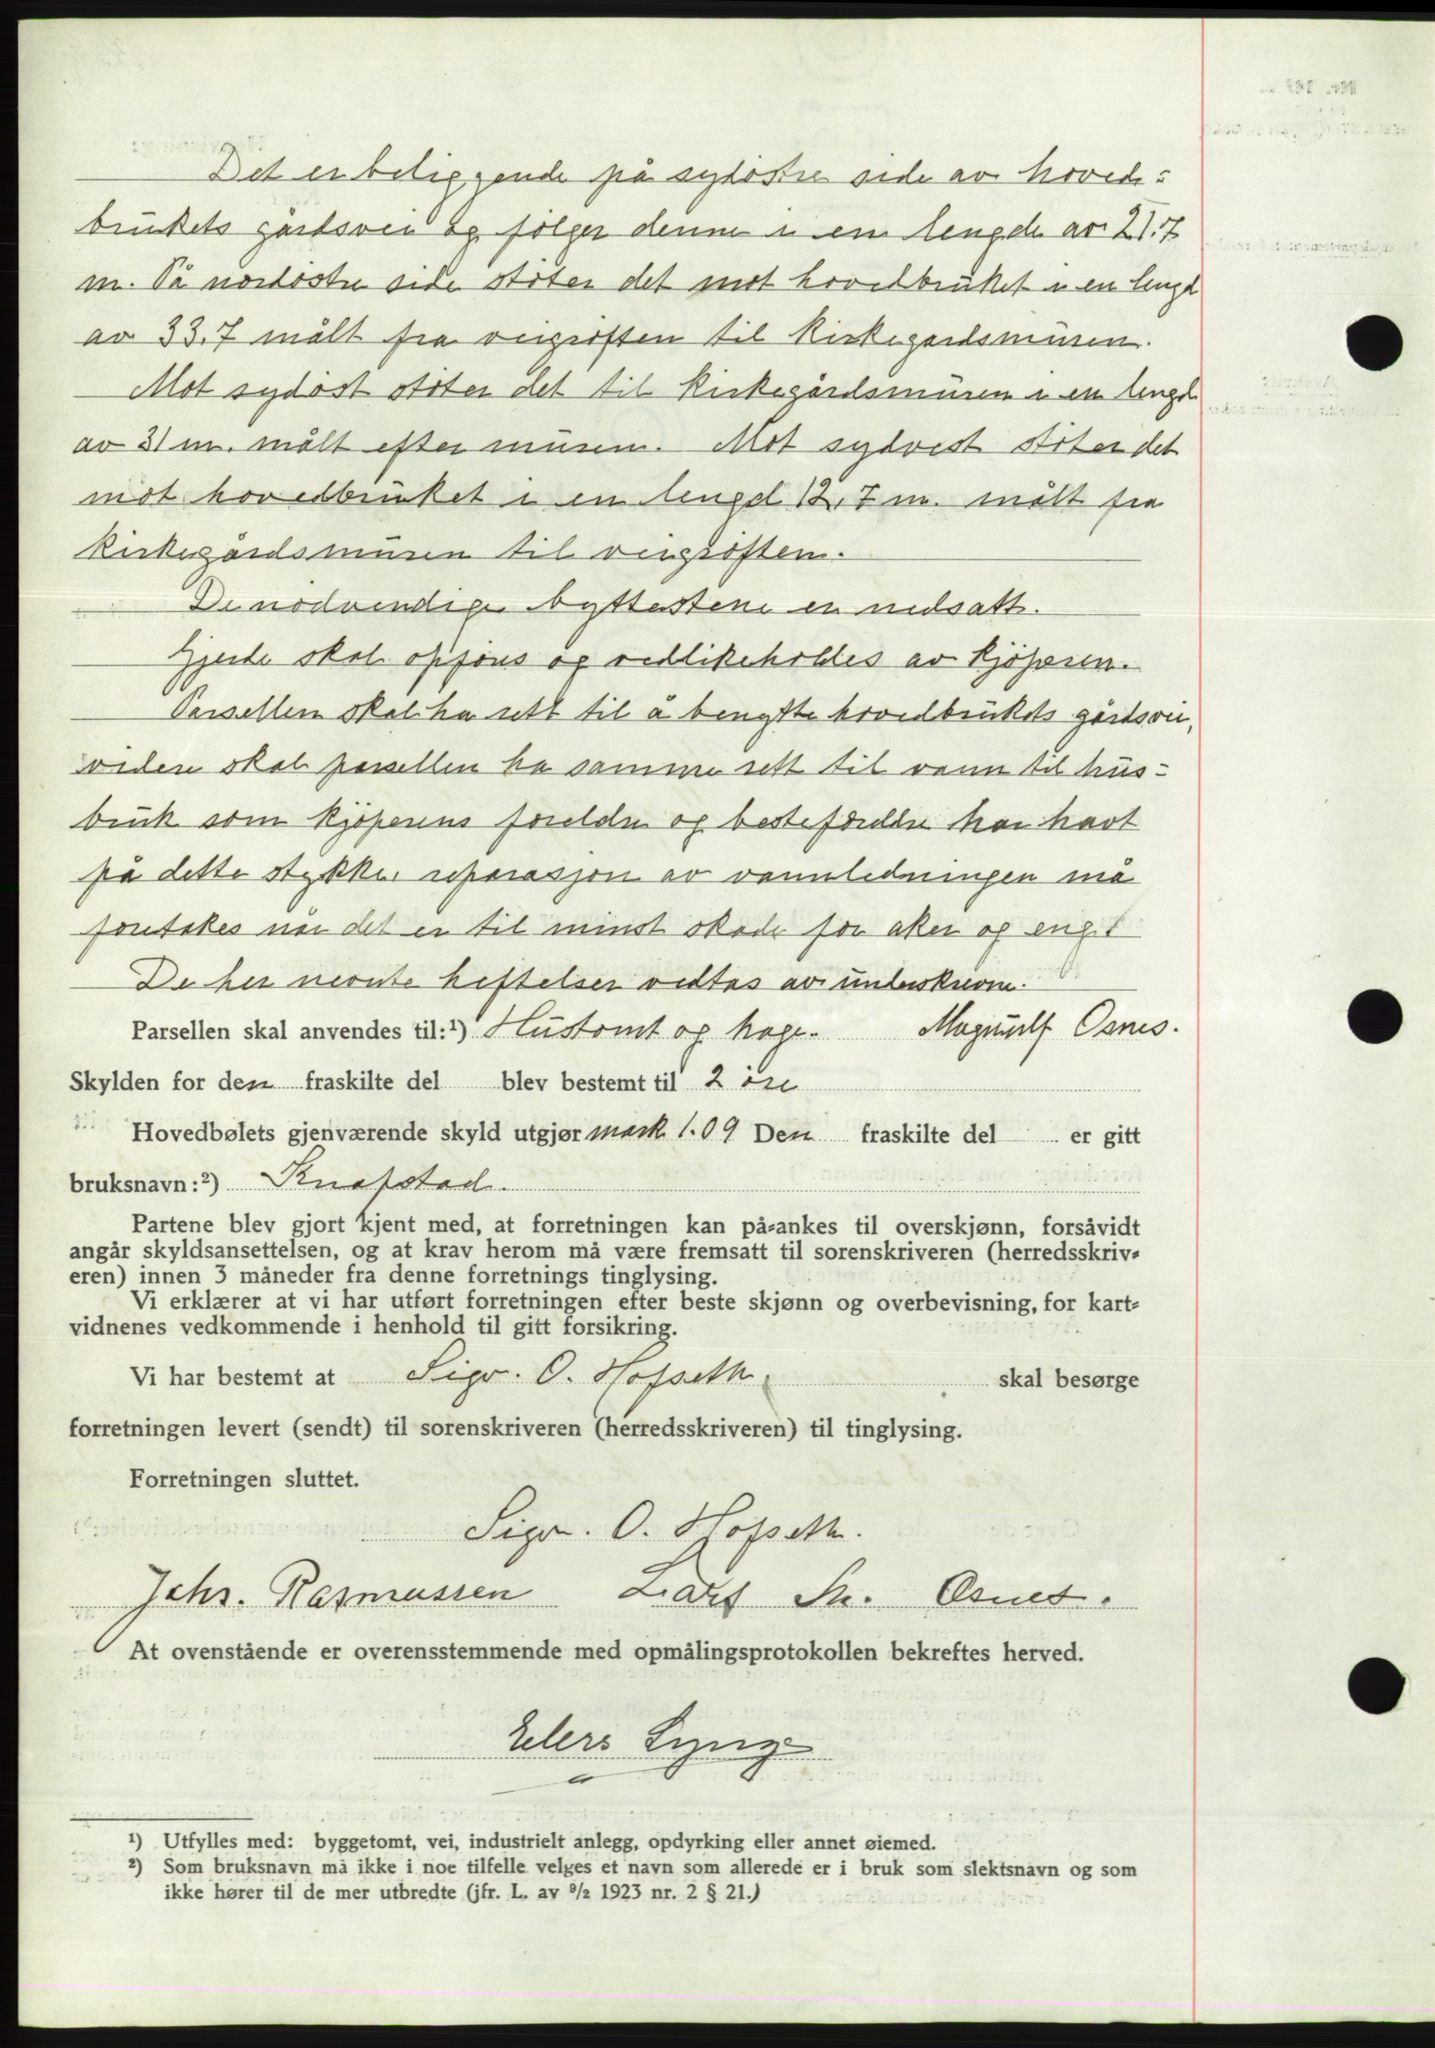 Det er beliggende på sydøstre side av hoved=
brukets gårdsvei og følger denne i en lengde av 21.7
m. På nordøstre side støter det mot hovedbruket i en lengd
av 33.7 målt fra veigrøften til kirkegardsmuren.
Mot sydøst støter det til kirkegårdsmuren i en lengd
av 31 m. målt efter muren. Mot sydvest støter det
mot hovedbruket i en lengd 12,7 m. målt fra
kirkegårdsmuren til veigrøften.
De nødvendige byttestene er nedsatt.
Gjerde skal opføres og vedlikeholdes av kjøperen.
Parsellen skal ha rett til å benytte hovedbrukets gårdsvei,
videre skal parsellen ha samme rett til vann til hus=
bruk som kjøperens foreldre og besteforeldre har havt
på dette stykke, reparasjon av vannledningen må
foretakes når det er til minst skade for aker og eng.
De her nevnte heftelser vedtas av underskrevne.
Parsellen skal anvendes til:¹) Hustomt og hage. Magnulf Osnes.
Skylden for den fraskilte del blev bestemt til 2 øre
Hovedbølets gjenværende skyld utgjør mark 1.09 Den fraskilte del er gitt
bruksnavn:²) Knapstad.
Partene blev gjort kjent med, at forretningen kan på=ankes til overskjønn, forsåvidt
angår skyldsansettelsen, og at krav herom må være fremsatt til sorenskriveren (herredsskriv=
eren) innen 3 måneder fra denne forretnings tinglysing.
Vi erklærer at vi har utført forretningen efter beste skjønn og overbevisning, for kart=
vidnenes vedkommende i henhold til gitt forsikring.
Vi har bestemt at Sigv. O. Hofseth skal besørge
forretningen levert (sendt) til sorenskriveren (herredsskriveren) til tinglysing.
Forretningen sluttet.
Sigv. O. Hofseth.
Johs. Rasmussen Lars Osnes.
At ovenstående er overensstemmende med opmålingsprotokollen bekreftes herved.
Elers Lynge
¹) Utfylles med: byggetomt, vei, industrielt anlegg, opdyrking eller annet øiemed.
²) Som bruksnavn må ikke i noe tilfelle velges et navn som allerede er i bruk som slektsnavn og som
ikke hører til de mer utbredte (jfr. L. av ⁹/₂ 1923 nr. 2 § 21.)